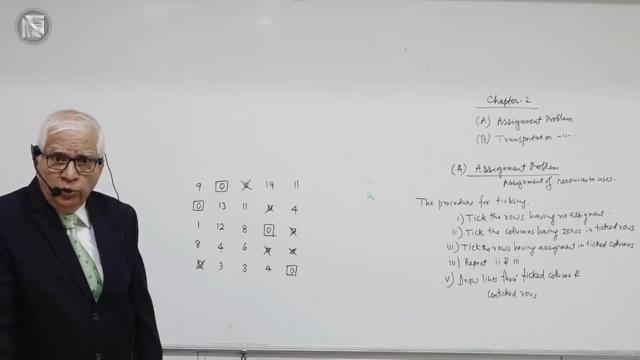 Chapter-2
(A) Assignment Problem
(B) Transportation -11-
(A) Assignment Problem
Assignment of resources to uses.
The procedure for ticking.
i) Tick the rows having no assigment.
ii) Tick the columns having zeros in ticked rows
iii) Tick the rows having assignment in ticked columns
iv) Repeat ii & iii
v) Draw lines thro' ticked columns &
unticked rows
9 0 0 19 11
0 13 11 0 4
1 12 8 0
8 4 6
0 3 3 4 0